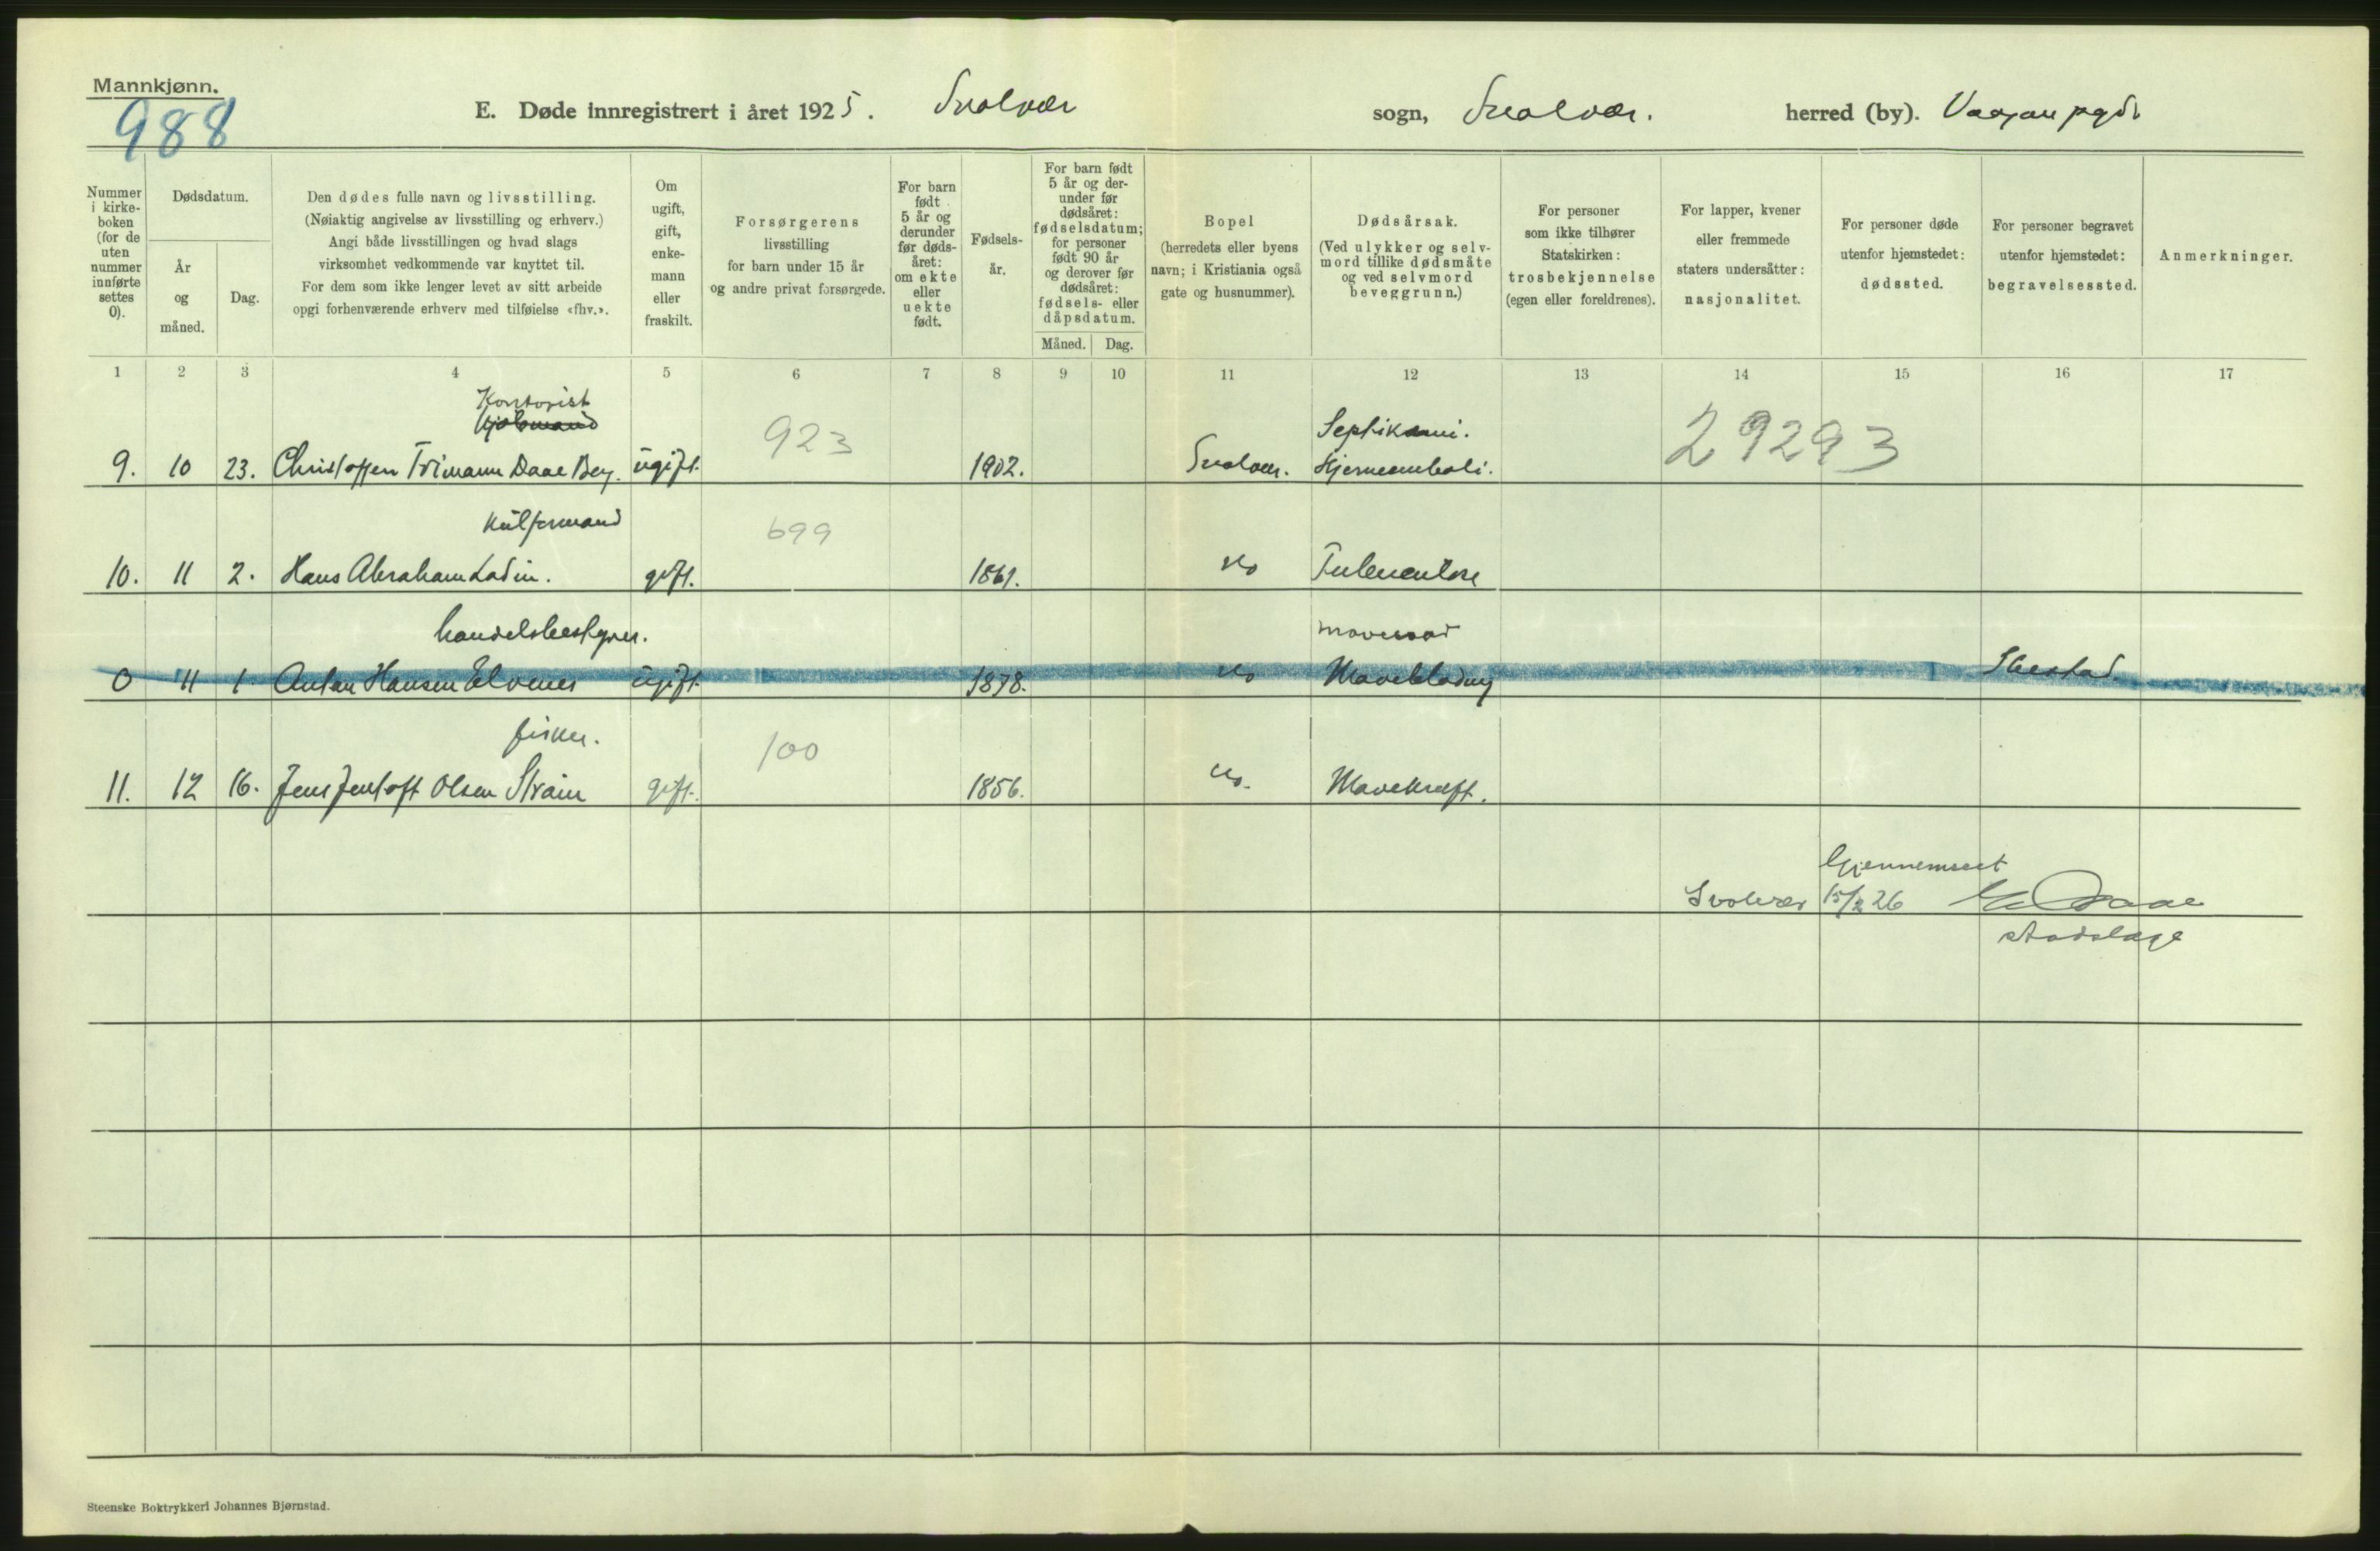 Mannkjønn.
988
E. Døde innregistrert i året 1925. Svolvær sogn, Svolvær. herred (by). Vaagan pgd.
Nummer i kirke-boken (for de uten nummer innførte settes 0).
Dødsdatum.
År og måned.
Dag.
Den dødes fulle navn og livsstilling.
(Nøiaktig angivelse av livsstilling og erhverv.)
Angi både livsstillingen og hvad slags
virksomhet vedkommende var knyttet til.
For dem som ikke lenger levet av sitt arbeide
opgi forhenværende erhverv med tilføielse «fhv.».
Om ugift, gift, enke-mann eller fraskilt.
Forsørgerens
livsstilling
for barn under 15 år
og andre privat forsørgede.
For barn født 5 år og derunder før døds-året: om ekte eller uekte født.
Fødsels-år.
For barn født 5 år og der-under før dødsåret: fødselsdatum; for personer født 90 år og derover før dødsåret: fødsels- eller dåpsdatum.
Måned.
Dag.
Bopel
(herredets eller byens
navn; i Kristiania også
gate og husnummer).
Dødsårsak.
(Ved ulykker og selv-
mord tillike dødsmåte
og ved selvmord
beveggrunn.)
For personer
som ikke tilhører
Statskirken:
trosbekjennelse
(egen eller foreldrenes).
For lapper, kvener
eller fremmede
staters undersåtter:
nasjonalitet.
For personer døde
utenfor hjemstedet:
dødssted.
For personer begravet
utenfor hjemstedet:
begravelsessted.
Anmerkninger.
1 2 3 4 5 6 7 8 9 10 11 12 13 14 15 16 17
Kontorist
923
Septikæmi.
29293
9. 10 23. Christoffer Trimann Daae Bey. ugift. 1902. Svolvær. Hjerneemboli.
Kulformand
699
10. 11 2. Hans Abraham Ladin. gift. 1861. do Tuberculose
handelsbestyrer.
mavesaar
0 11 1 Anton Hansen Elvenes ugift. 1878. do Maveblødng Ibestad.
fisker.
100
11. 12 16. Jens Jentoft Olsen Strain gift. 1856. do. Mavekreft.
Gjennemseet
Svolvær 15/2 26 Daae
stadslæge
Steenske Boktrykkeri Johannes Bjørnstad.